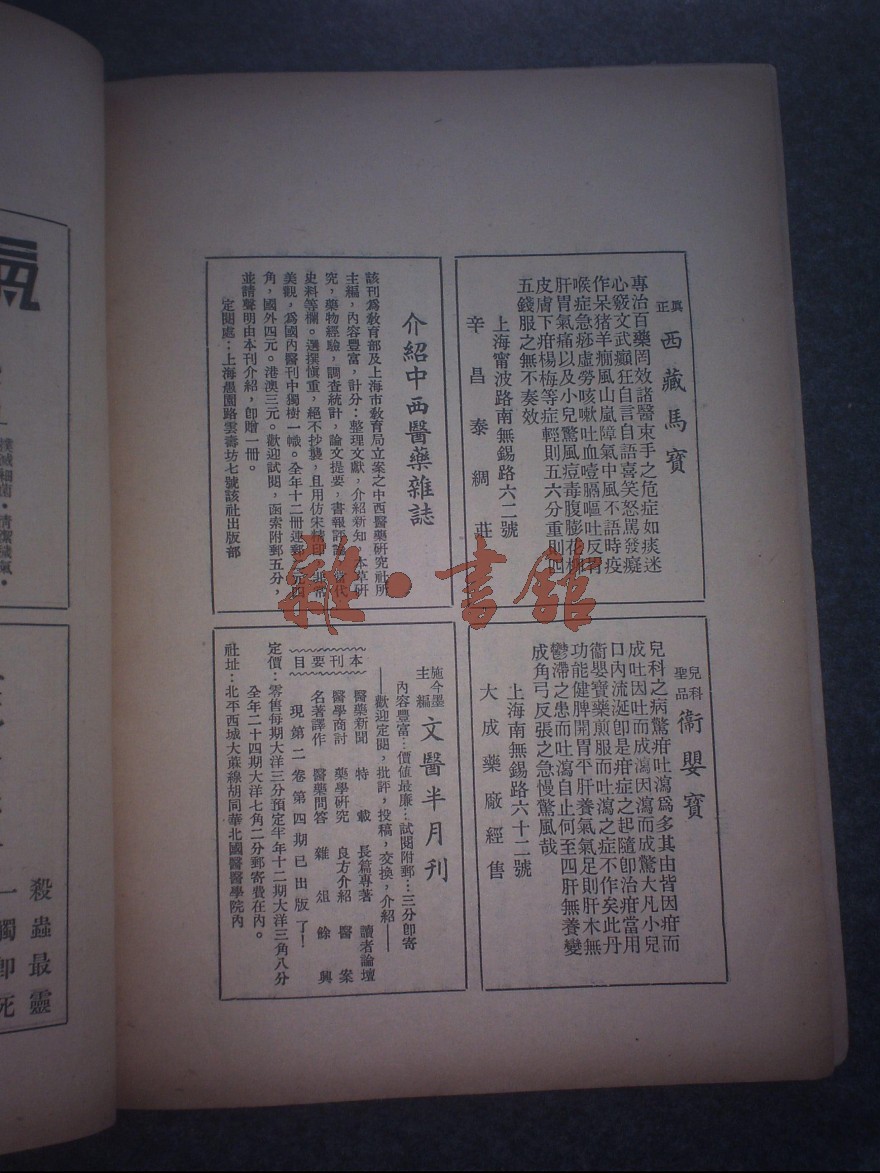 真正
西藏馬寶
專治百藥罔效諸醫束手之危症如痰迷
心竅文武癲狂自言自語喜笑怒罵發癡
作呆猪羊癇風山嵐障氣中風不語時疫
喉症急痧虛勞咳嗽吐血噎膈嘔吐反胃
肝胃氣痛以及小兒驚風痘毒腹膨花柳
皮膚下疳楊梅等症輕則五六分重則四
五錢服之無不奏效
上海甯波路南無錫路六二號
辛昌泰綢莊
介紹中西醫藥雜誌
該刊爲教育部及上海市教育局立案之中西醫藥研究社所
主編，內容豐富，計分：整理文獻，介紹新知，本草研
究，藥物經驗，調查統計，論文提要，書報評論，當代
史料等欄。選撰愼重，絕不抄襲，且用仿宋精印，非常
美觀，爲國內醫刊中獨樹一幟。全年十二冊連郵二元四
角，國外四元。港澳三元。歡迎試閱，函索附郵五分，
並請聲明由本刊介紹，卽贈一冊。
定閱處：上海愚園路雲壽坊七號該社出版部
兒科聖品
衞嬰寶
兒科之病驚疳吐瀉爲多其由皆因疳而
成吐因吐而成瀉因瀉而成驚大凡小兒
口內流涎卽是疳症之起隨卽治疳當用
衞嬰寶藥煎服而吐瀉之症不作矣此丹
功能健脾開胃平肝養氣氣足則肝木無
鬱滯之患而吐瀉自止何至四肝無養變
成角弓反張之急慢驚風哉
上海南無錫路六十二號
大成藥廠經售
施今墨主編
文醫半月刊
內容豐富…價値最廉…試閱附郵…三分卽寄
——歡迎定閱，批評，投稿，交換，介紹——
本刊要目
醫藥新聞 特載 長篇專著 讀者論壇
醫學商討 藥學研究 良方介紹 醫案
名著譯作 醫藥問答 雜俎 餘興
現第二卷第四期已出版了！
定價：零售每期大洋三分預定半年十二期大洋三角八分
全年二十四期大洋七角二分郵寄費在內。
社址：北平西城大蔴線胡同華北國醫學院內
氣
撲滅細菌・清潔穢氣・
殺蟲最靈
一觸卽死
雜·書館